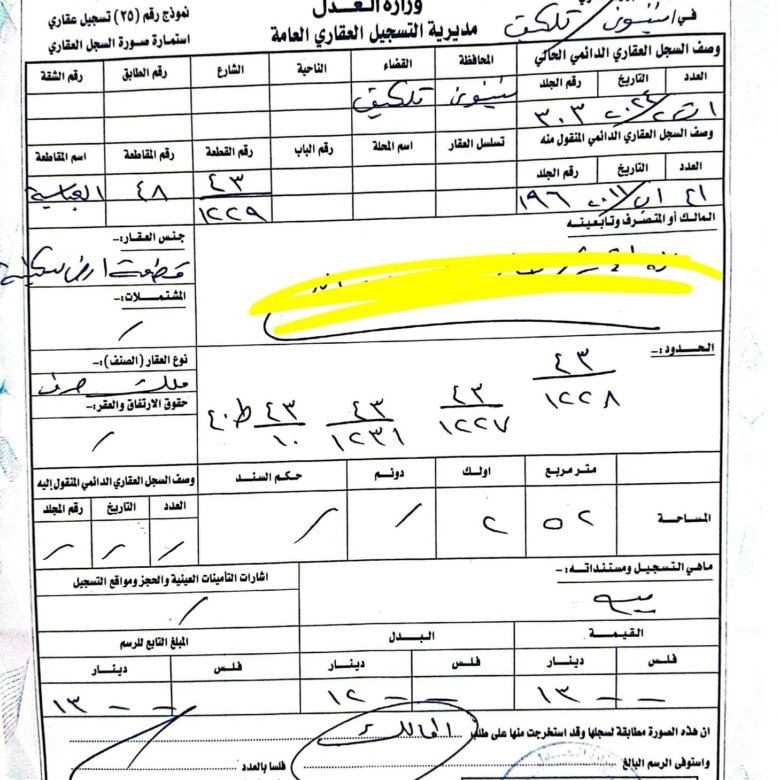 وزارة العدل
مديرية التسجيل العقاري العامة
نموذج رقم (٢٥) تسجيل عقاري
استمارة صورة السجل العقاري
في / نينوى / تلكيف
وصف السجل العقاري الدائمي الحالي
المحافظة القضاء الناحية الشارع رقم الطابق رقم الشقة
العدد التاريخ رقم الجلد
نينوى تلكيف
٢٠٢٤ ٣٠٣
وصف السجل العقاري الدائمي المنقول منه
تسلسل العقار اسم المحلة رقم الباب رقم القطعة رقم المقاطعة اسم المقاطعة
العدد التاريخ رقم الجلد
٢١ ٢٠١١ ١٩٦
٤٣
١٢٢٩
٤٨ العباسية
المالك أو المتصرف وتابعيته
جنس العقار:-
قطعة ارض سكنية
المشتملات:-
/
نوع العقار (الصنف):-
ملك صرف
حقوق الارتفاق والعقر:-
/
الحدود:-
٤٣
١٢٢٨
٤٣
١٢٢٧
٤٣
١٢٣١
٤٣
١٠
ط ٤٠
متر مربع اولك دونم حكم السند
المساحة
٥٢ ٢ / /
وصف السجل العقاري الدائمي المنقول إليه
العدد التاريخ رقم المجلد
/ / /
ماهي التسجيل ومستنداته:-
اشارات التأمينات العينية والحجز ومواقع التسجيل
/
القيمة البدل المبلغ التابع للرسم
فلس دينار فلس دينار فلس دينار
-- ١٣-- -- ١٢-- ١٣--
ان هذه الصورة مطابقة لسجلها وقد استخرجت منها على طلب المالك
واستوفى الرسم البالغ فلسا بالعدد